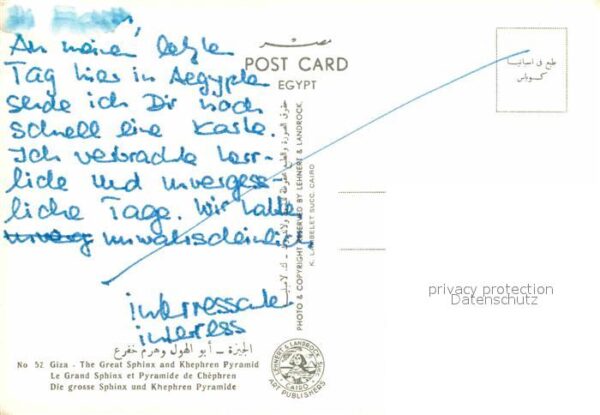 An meinen letzten
Tag hier in Aegypten
sende ich Dir noch
schnell eine Karte.
Ich verbrachte herr-
liche und unvergess-
liche Tage. Wir hatten
unwahrscheinlich
interressante
interess
مصر
POST CARD
EGYPT
طبع في اسبانيا
كوبلس
PHOTO & COPYRIGHT RESERVED BY LEHNERT & LANDROCK
K. LAMBELET SUCC. CAIRO
privacy protection
Datenschutz
الجيزة – أبو الهول وهرم خفرع
No 52 Giza - The Great Sphinx and Khephren Pyramid
Le Grand Sphinx et Pyramide de Chéphren
Die grosse Sphinx und Khephren Pyramide
LEHNERT & LANDROCK SUCC.
CAIRO
ART PUBLISHERS